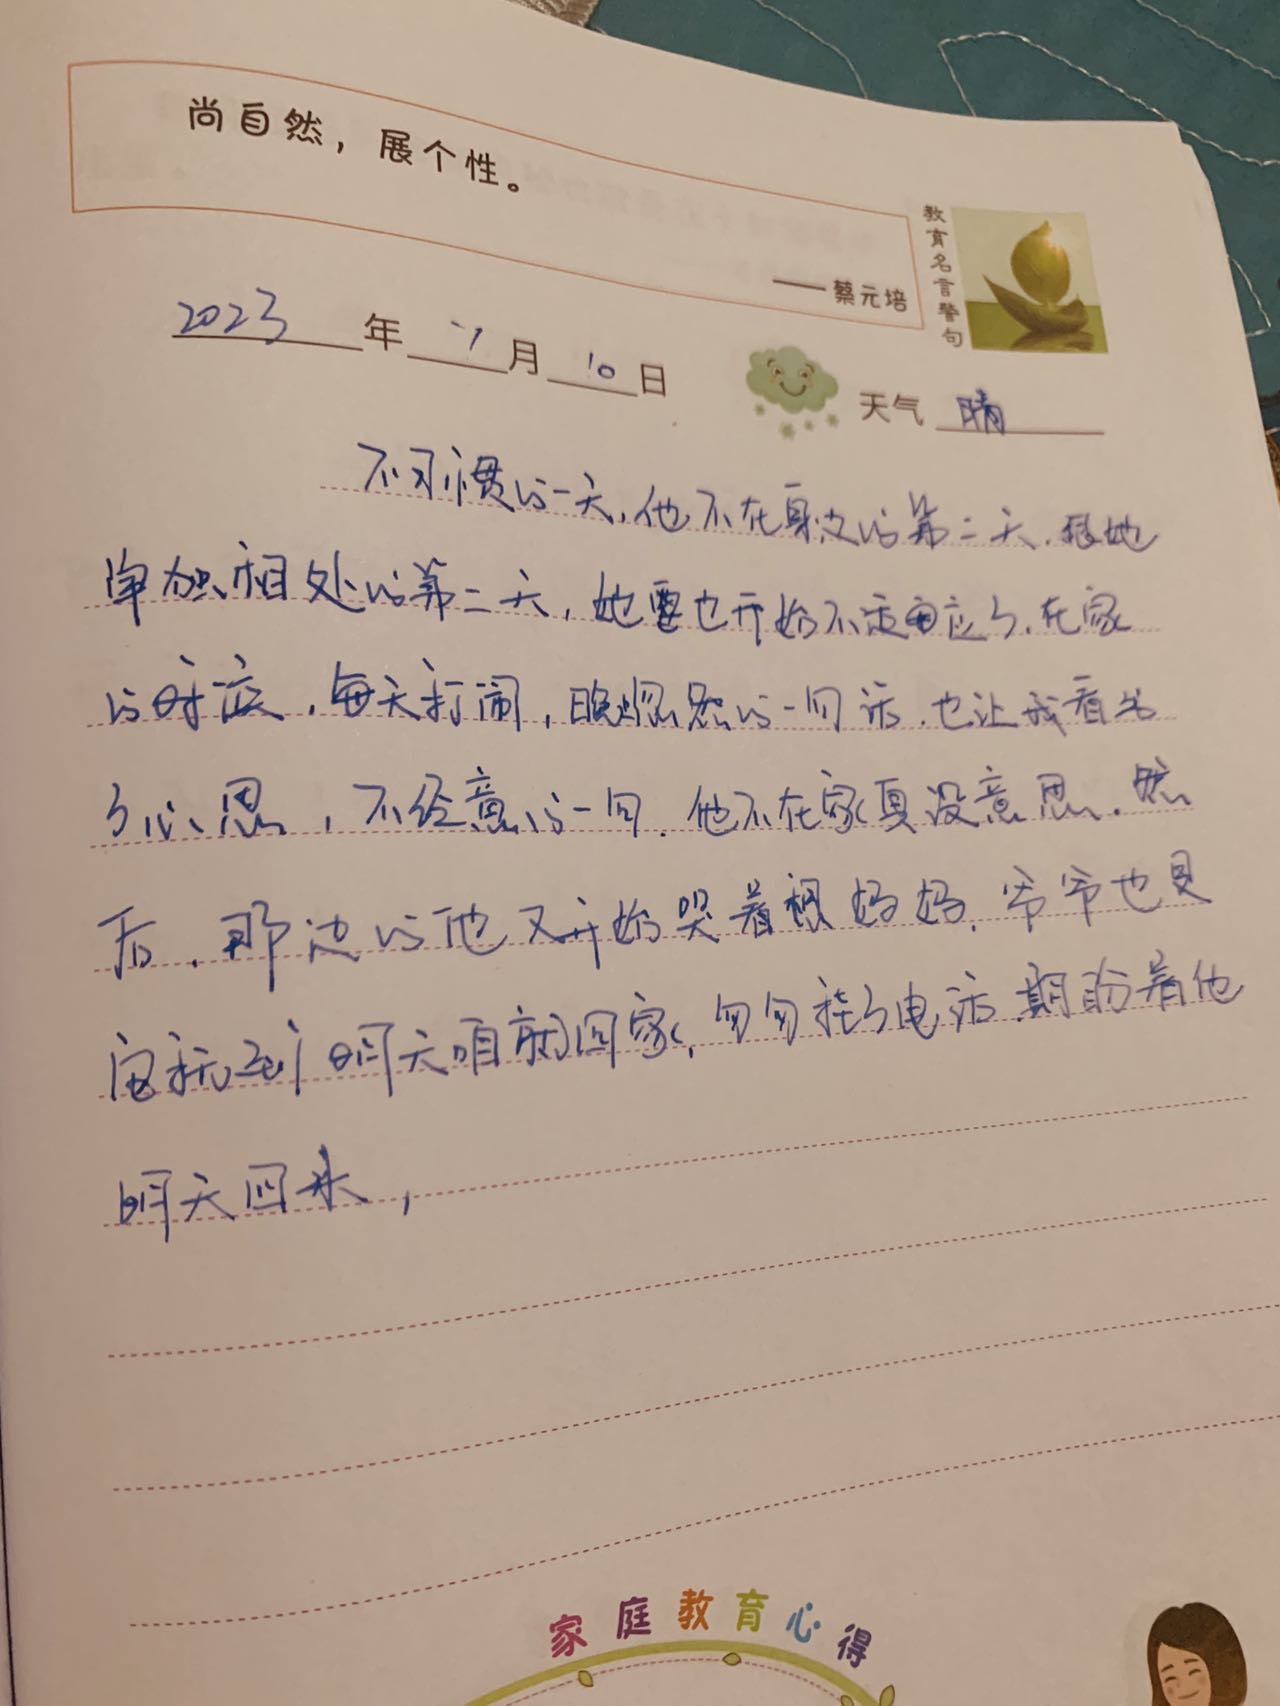 尚自然，展个性。
——蔡元培
教育名言警句
2023年 7月 10日
天气 晴
不习惯的一天，他不在身边的第二天，跟她
单独相处的第二天，她也开始不适应了，在家
的时候，每天打闹，的一句话，也让我看出
了心思，不经意的一句，他不在家真没意思，然
后，那边的他又开始哭着想妈妈，爷爷也
到明天咱就回家，匆匆挂了电话，期盼着他
明天回来，
家庭教育心得